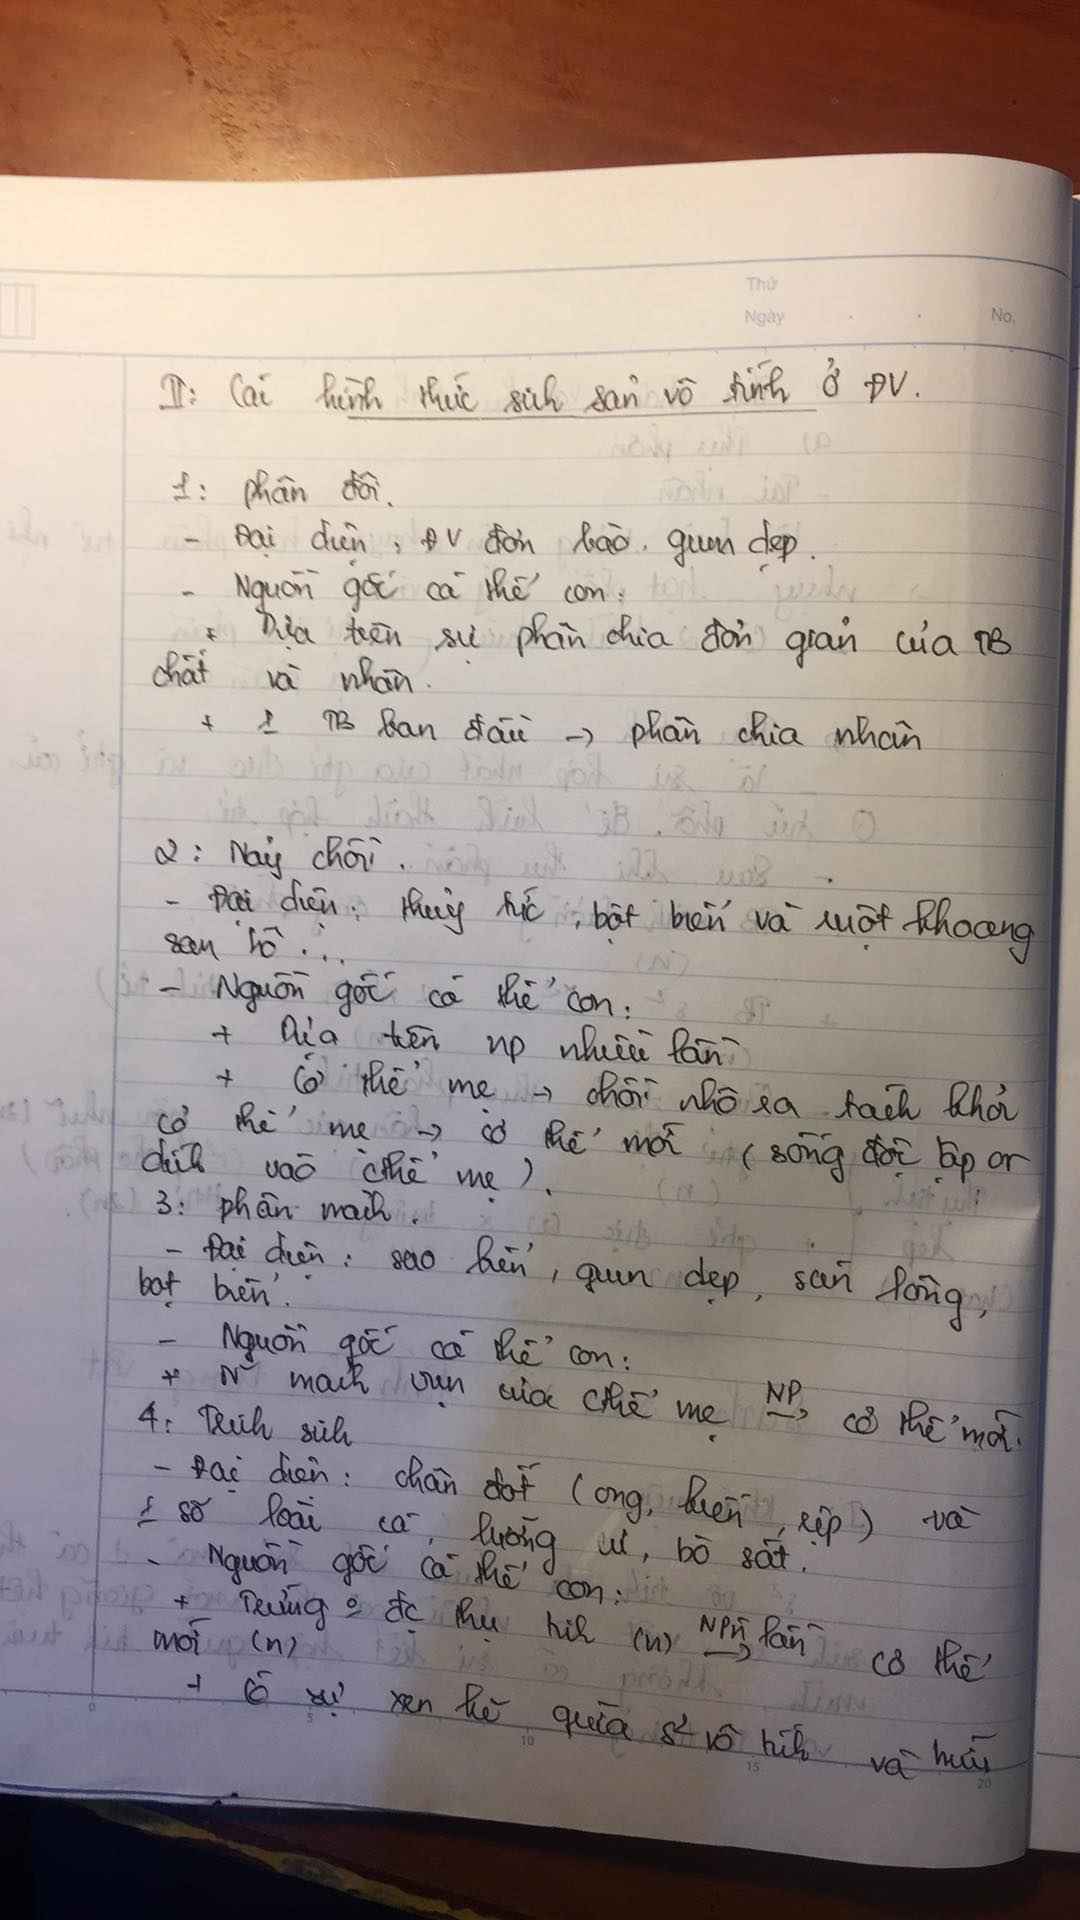 Thứ
Ngày
No.
II: Các hình thức sinh sản vô tính ở ĐV.
1: phân đôi.
- Đại diện: ĐV đơn bào, giun dẹp.
- Nguồn gốc cá thể con:
+ Dựa trên sự phân chia đơn giản của TB
chất và nhân.
+ 1 TB ban đầu → phân chia nhân
2: Nảy chồi.
- Đại diện: thuỷ tức, bọt biển và ruột khoang
san hô...
- Nguồn gốc cá thể con:
+ Dựa trên np nhiều lần
+ Cơ thể mẹ → chồi nhô ra tách khỏi
cơ thể mẹ → cơ thể mới (sống độc lập or
dính vào cthể mẹ).
3: phân mảnh.
- Đại diện: sao biển, giun dẹp, sán lông,
bọt biển.
- Nguồn gốc cá thể con:
+ N~ mảnh vụn của cthể mẹ NP→ cơ thể mới.
4: Trinh sinh
- Đại diện: chân đốt (ong, kiến, rệp) và
1 số loài cá, lưỡng cư, bò sát.
- Nguồn gốc cá thể con:
+ Trứng o đc thụ tinh (n) NPn→ lần cơ thể
mới (n)
+ Có sự xen kẽ giữa s² vô tính và hữu
0 5 10 15 20